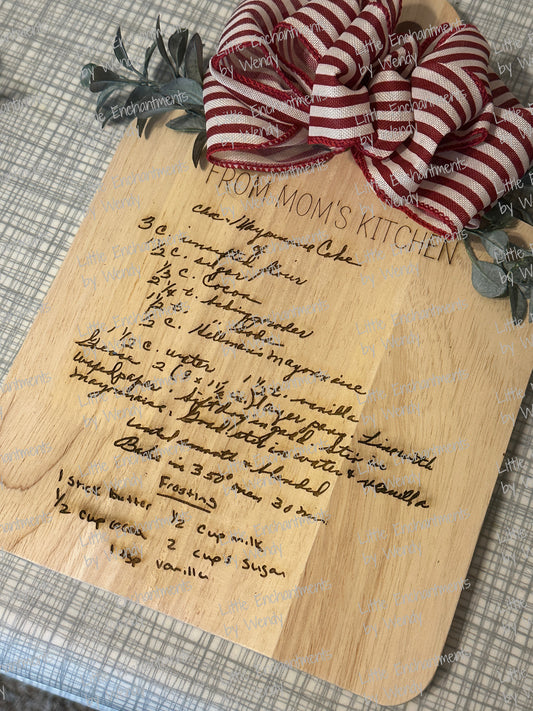 FROM MOM'S KITCHEN
choc. Mayonnaise Cake
3 c. unsifted flour
1½ c. sugar
⅓ c. Cocoa
2¼ t. baking powder
1½ t. soda
1½ c. Hellman's Mayonnaise
1½ c. water 1½ t. vanilla
Grease 2 (9 x 1½") layer pans. Line with
waxed paper. Sift dry ingred. stir in
mayonnaise. Gradually stir in water & vanilla
until smooth & blended
Bake in 350° oven 30 min.
Frosting
1 stick butter ½ cup milk
½ cup cocoa 2 cups sugar
1 tsp vanilla
Little Enchantments
by Wendy